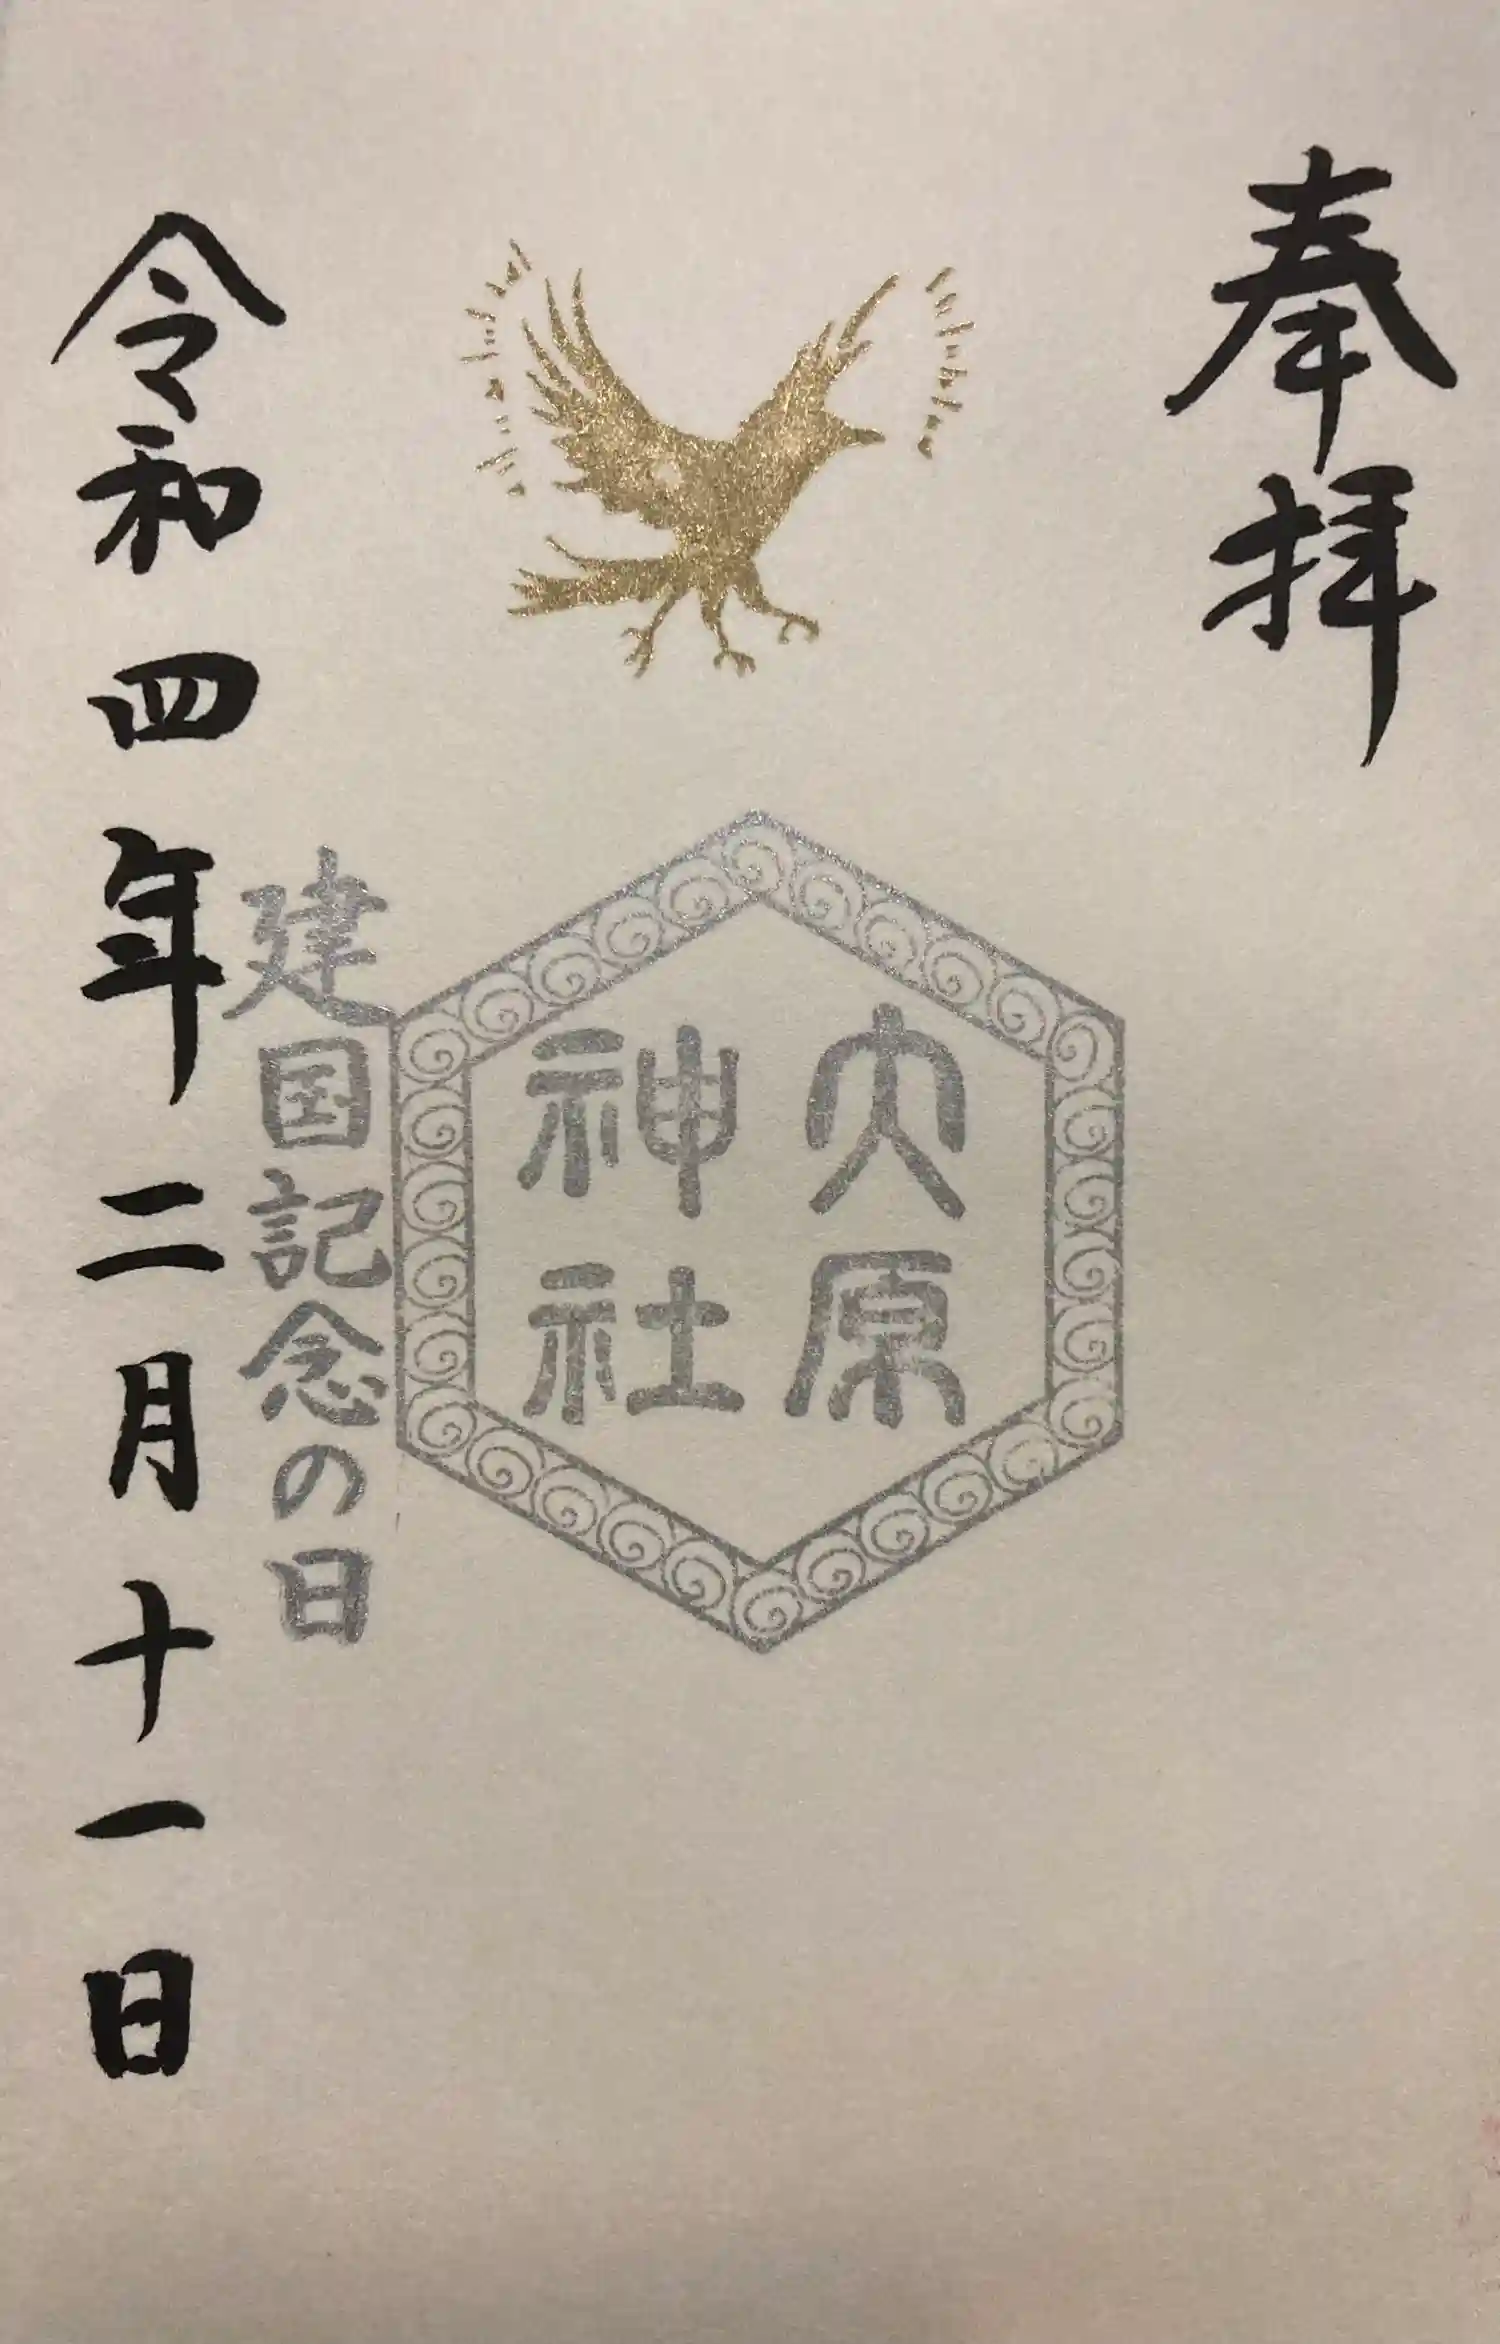 奉拝
大原
神社
建国記念の日
令和四年二月十一日